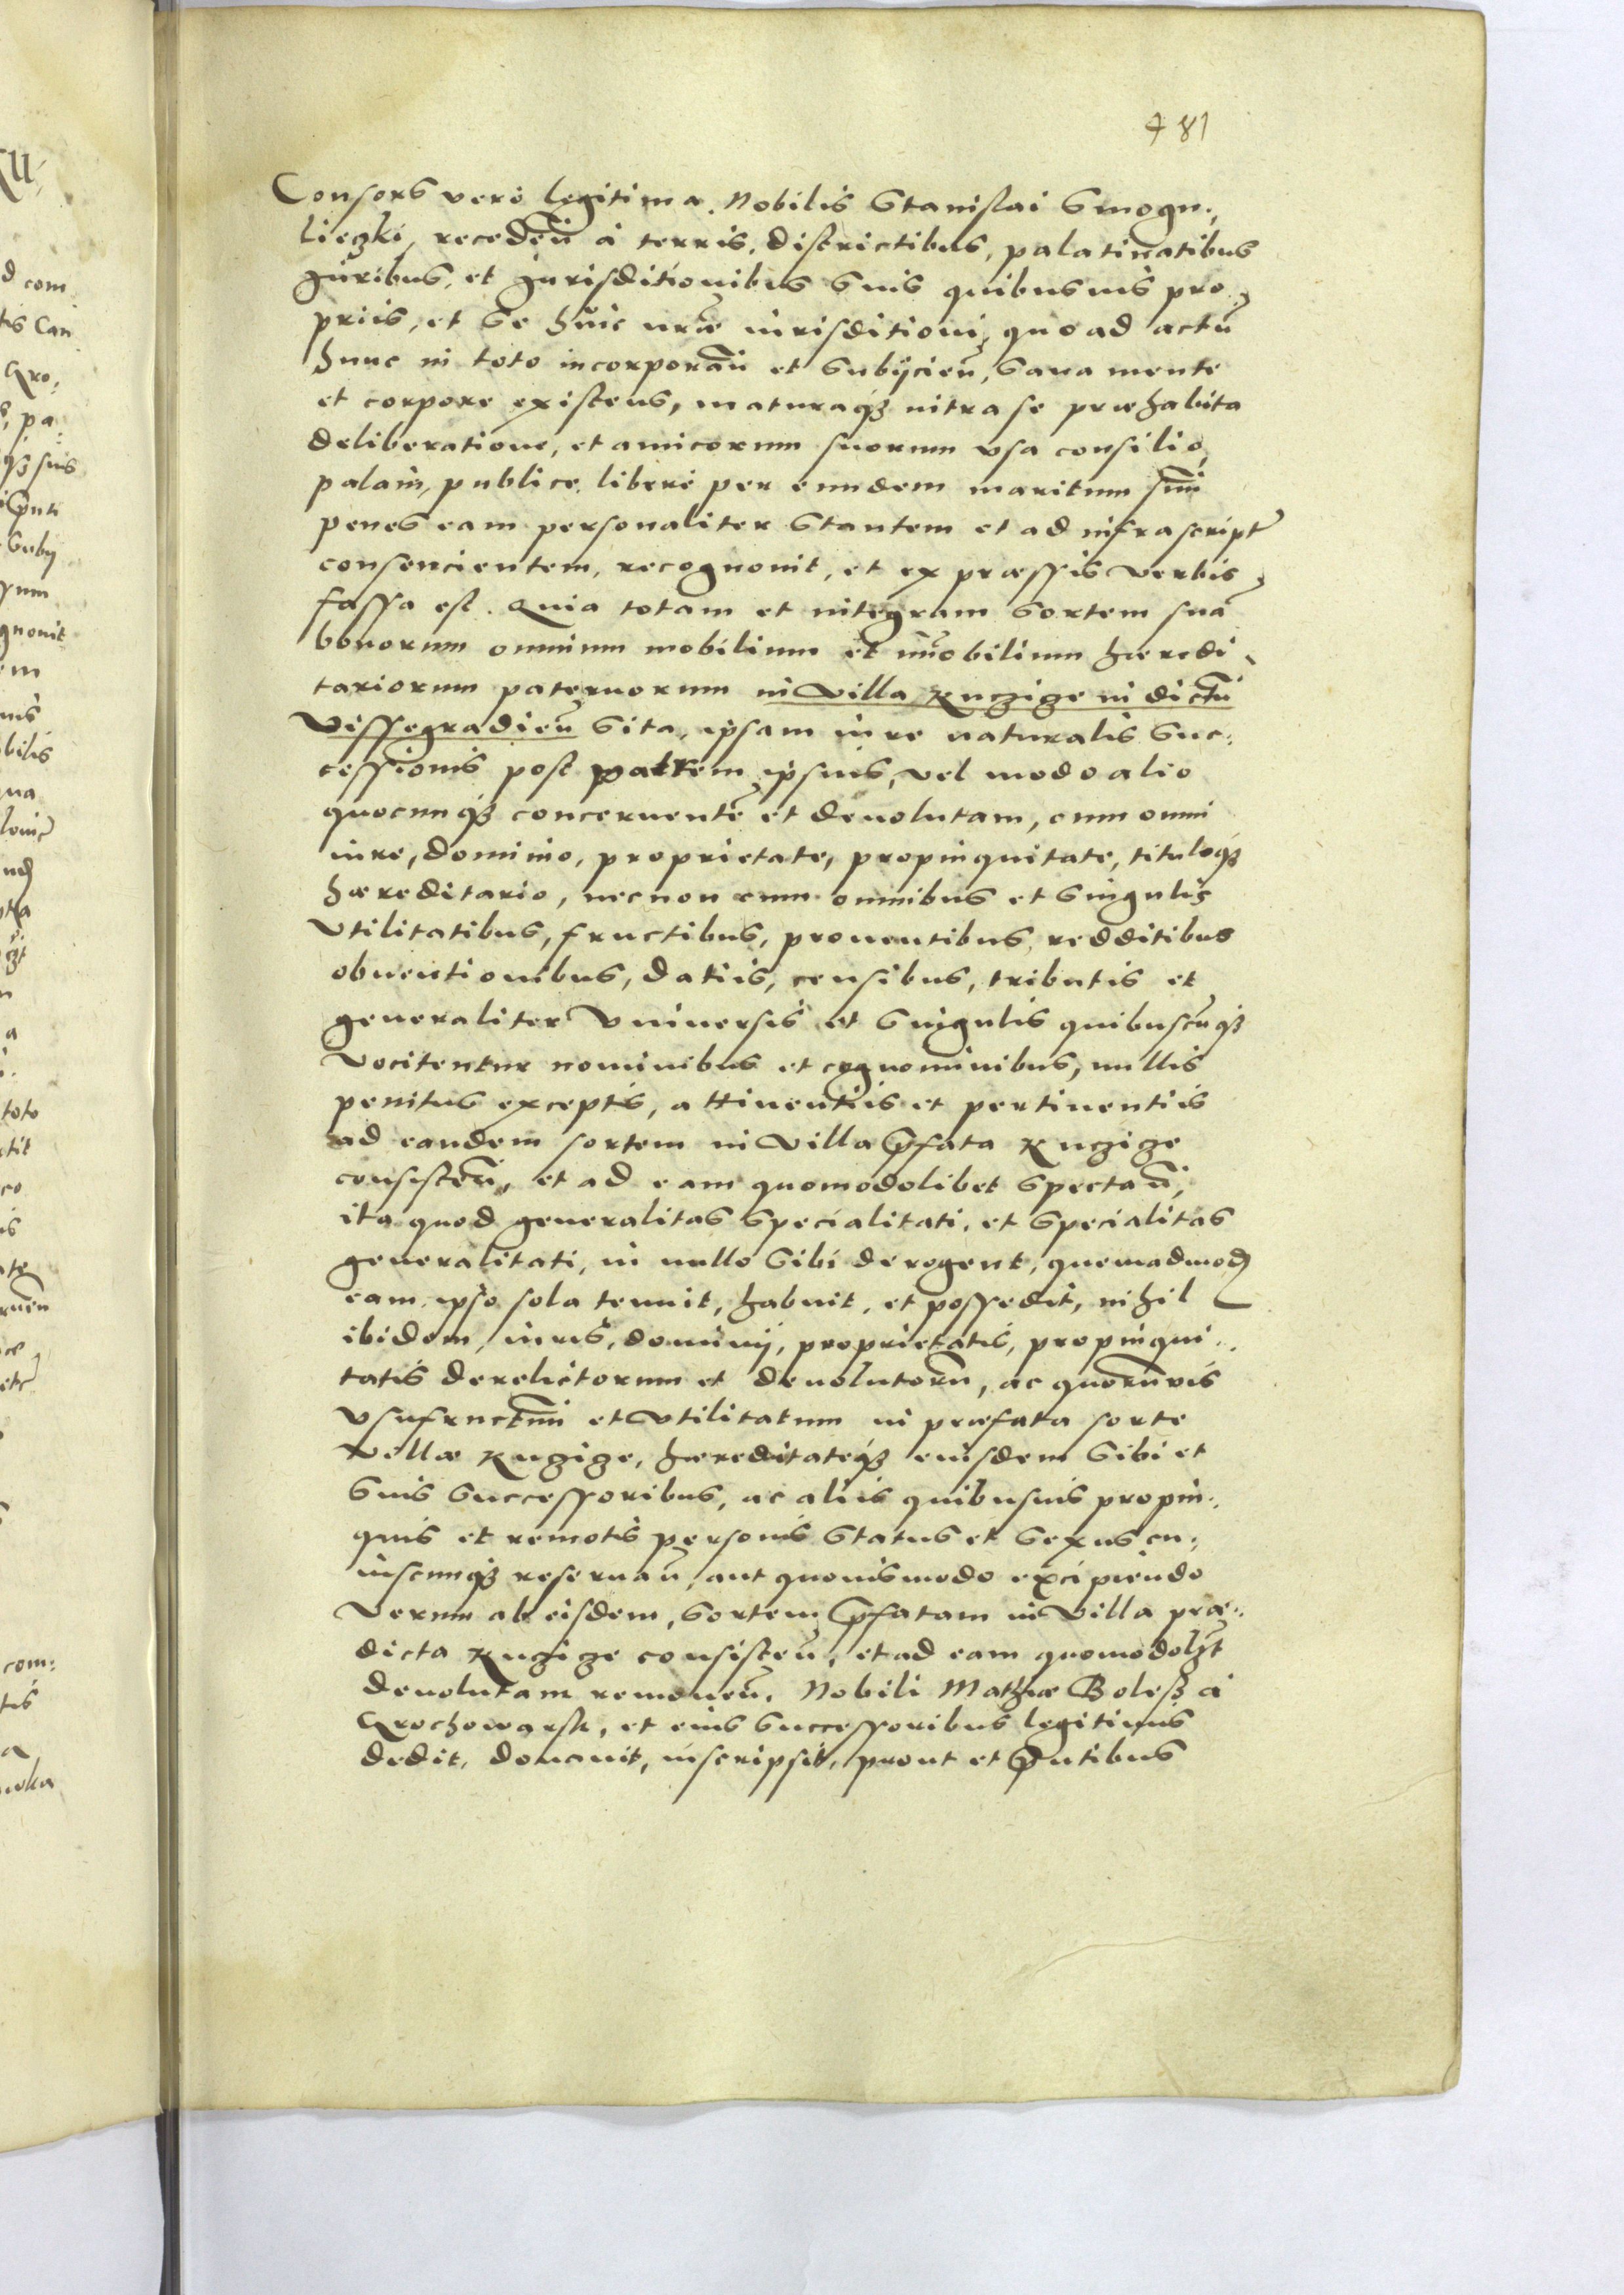 481
Consors vero legitima Nobilis Stanislai Smogu-,
liegki, recedeñ a terris, districtibus, palatinatibus
guribus, et gurisditionibus suis quibusuis pro,
priis, et se huic nrae iurisditioni, quo ad actũ
hunc in toto incorporañ et subijcieñ, sana mente
et corpore existens, maturaq3 intra se praehabita
deliberatione, et amicorum suorum vsa consilio,
palam, publice, libere per eundem maritum suũ
penes eam personaliter stantem et ad infrascript
consencientem, recognouit, et ex praessis verbis,
fassa est. Quia totam et integram sortem suã
bonorum omnium mobilium et im̃obilium haeredi-
tariorum paternorum in villa Ruzige in dictũ
Vissegradieñ sita, ipsam iure naturalis suc:
cessionis post patrem ipsius, vel modo alio
quocunq3 concernente et deuolutam, cum omni
iure, dominio, proprietate, propinquitate, tituloq3
haereditario, necnon cum omnibus et singulis
vtilitatibus, fructibus, prouentibus, redditibus
obuentionibus, datiis, censibus, tributis et
generaliter vniuersis et singulis quibuscũq3
vocitentur nominibus et cognominibus, nullis
penitus exceptis, attinentiis et pertinentiis
ad eandem sortem in villa p̃fata Ruzige
consisteñ, et ad eam quomodolibet spectañ,
ita quod generalitas specialitati, et specialitas
generalitati, in nullo sibi derogent, quemadmod
eam ipso sola tenuit, habuit, et possedit, nihil
ibidem, iuris, dominij, proprietatis, propinqui-,
tatis derelictorum et deuolutorũ, ac quorũuis
vsufructuũ et vtilitatum in praefata sorte
villae Ruzige, haereditateq3 eiusdem sibi et
suis successoribus, ac aliis quibusuis propin-,
quis et remotis personis status et sexus cu-,
iuscunq3 reseruañ, aut quouismodo excipiendo
verum ab eisdem, sortem p̃fatam in villa prae-,
dicta Ruzige consisteñ, et ad eam quomodolz̃t
deuolutam remoueñ, Nobili Mathiae Bolesz a
Grochowarsk, et eius successoribus legitimis
dedit, donauit, inscripsit, prout et p̃ntibus